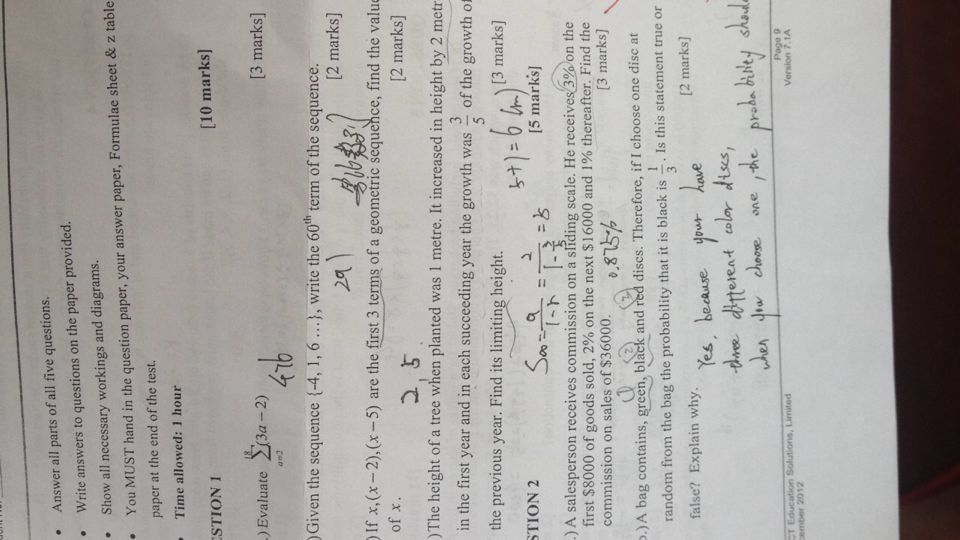 • Answer all parts of all five questions.
• Write answers to questions on the paper provided.
• Show all necessary workings and diagrams.
• You MUST hand in the question paper, your answer paper, Formulae sheet & z table
paper at the end of the test.
• Time allowed: 1 hour
ESTION 1 [10 marks]
.) Evaluate 18 ∑ a=2 (3a − 2) [3 marks]
476
)Given the sequence {-4, 1, 6 …}, write the 60th term of the sequence.
[2 marks]
291
)If x,(x−2),(x−5) are the first 3 terms of a geometric sequence, find the value
of x. [2 marks]
2, 5
)The height of a tree when planted was 1 metre. It increased in height by 2 metr
in the first year and in each succeeding year the growth was 3/5 of the growth of
the previous year. Find its limiting height. [3 marks]
5+1=6 (m)
STION 2 [5 marks]
S∞ = a/(1-r) = 2/(1-3/5) = 5
.) A salesperson receives commission on a sliding scale. He receives 3% on the
first $8000 of goods sold, 2% on the next $16000 and 1% thereafter. Find the
commission on sales of $36000. [3 marks]
0.875%
① ② ③
b.)A bag contains, green, black and red discs. Therefore, if I choose one disc at
random from the bag the probability that it is black is 1/3. Is this statement true or
false? Explain why. [2 marks]
Yes, because your have
three different color discs,
when you choose one, the probability should
CT Education Solutions, Limited Page 9
cember 2012 Version 7.1A